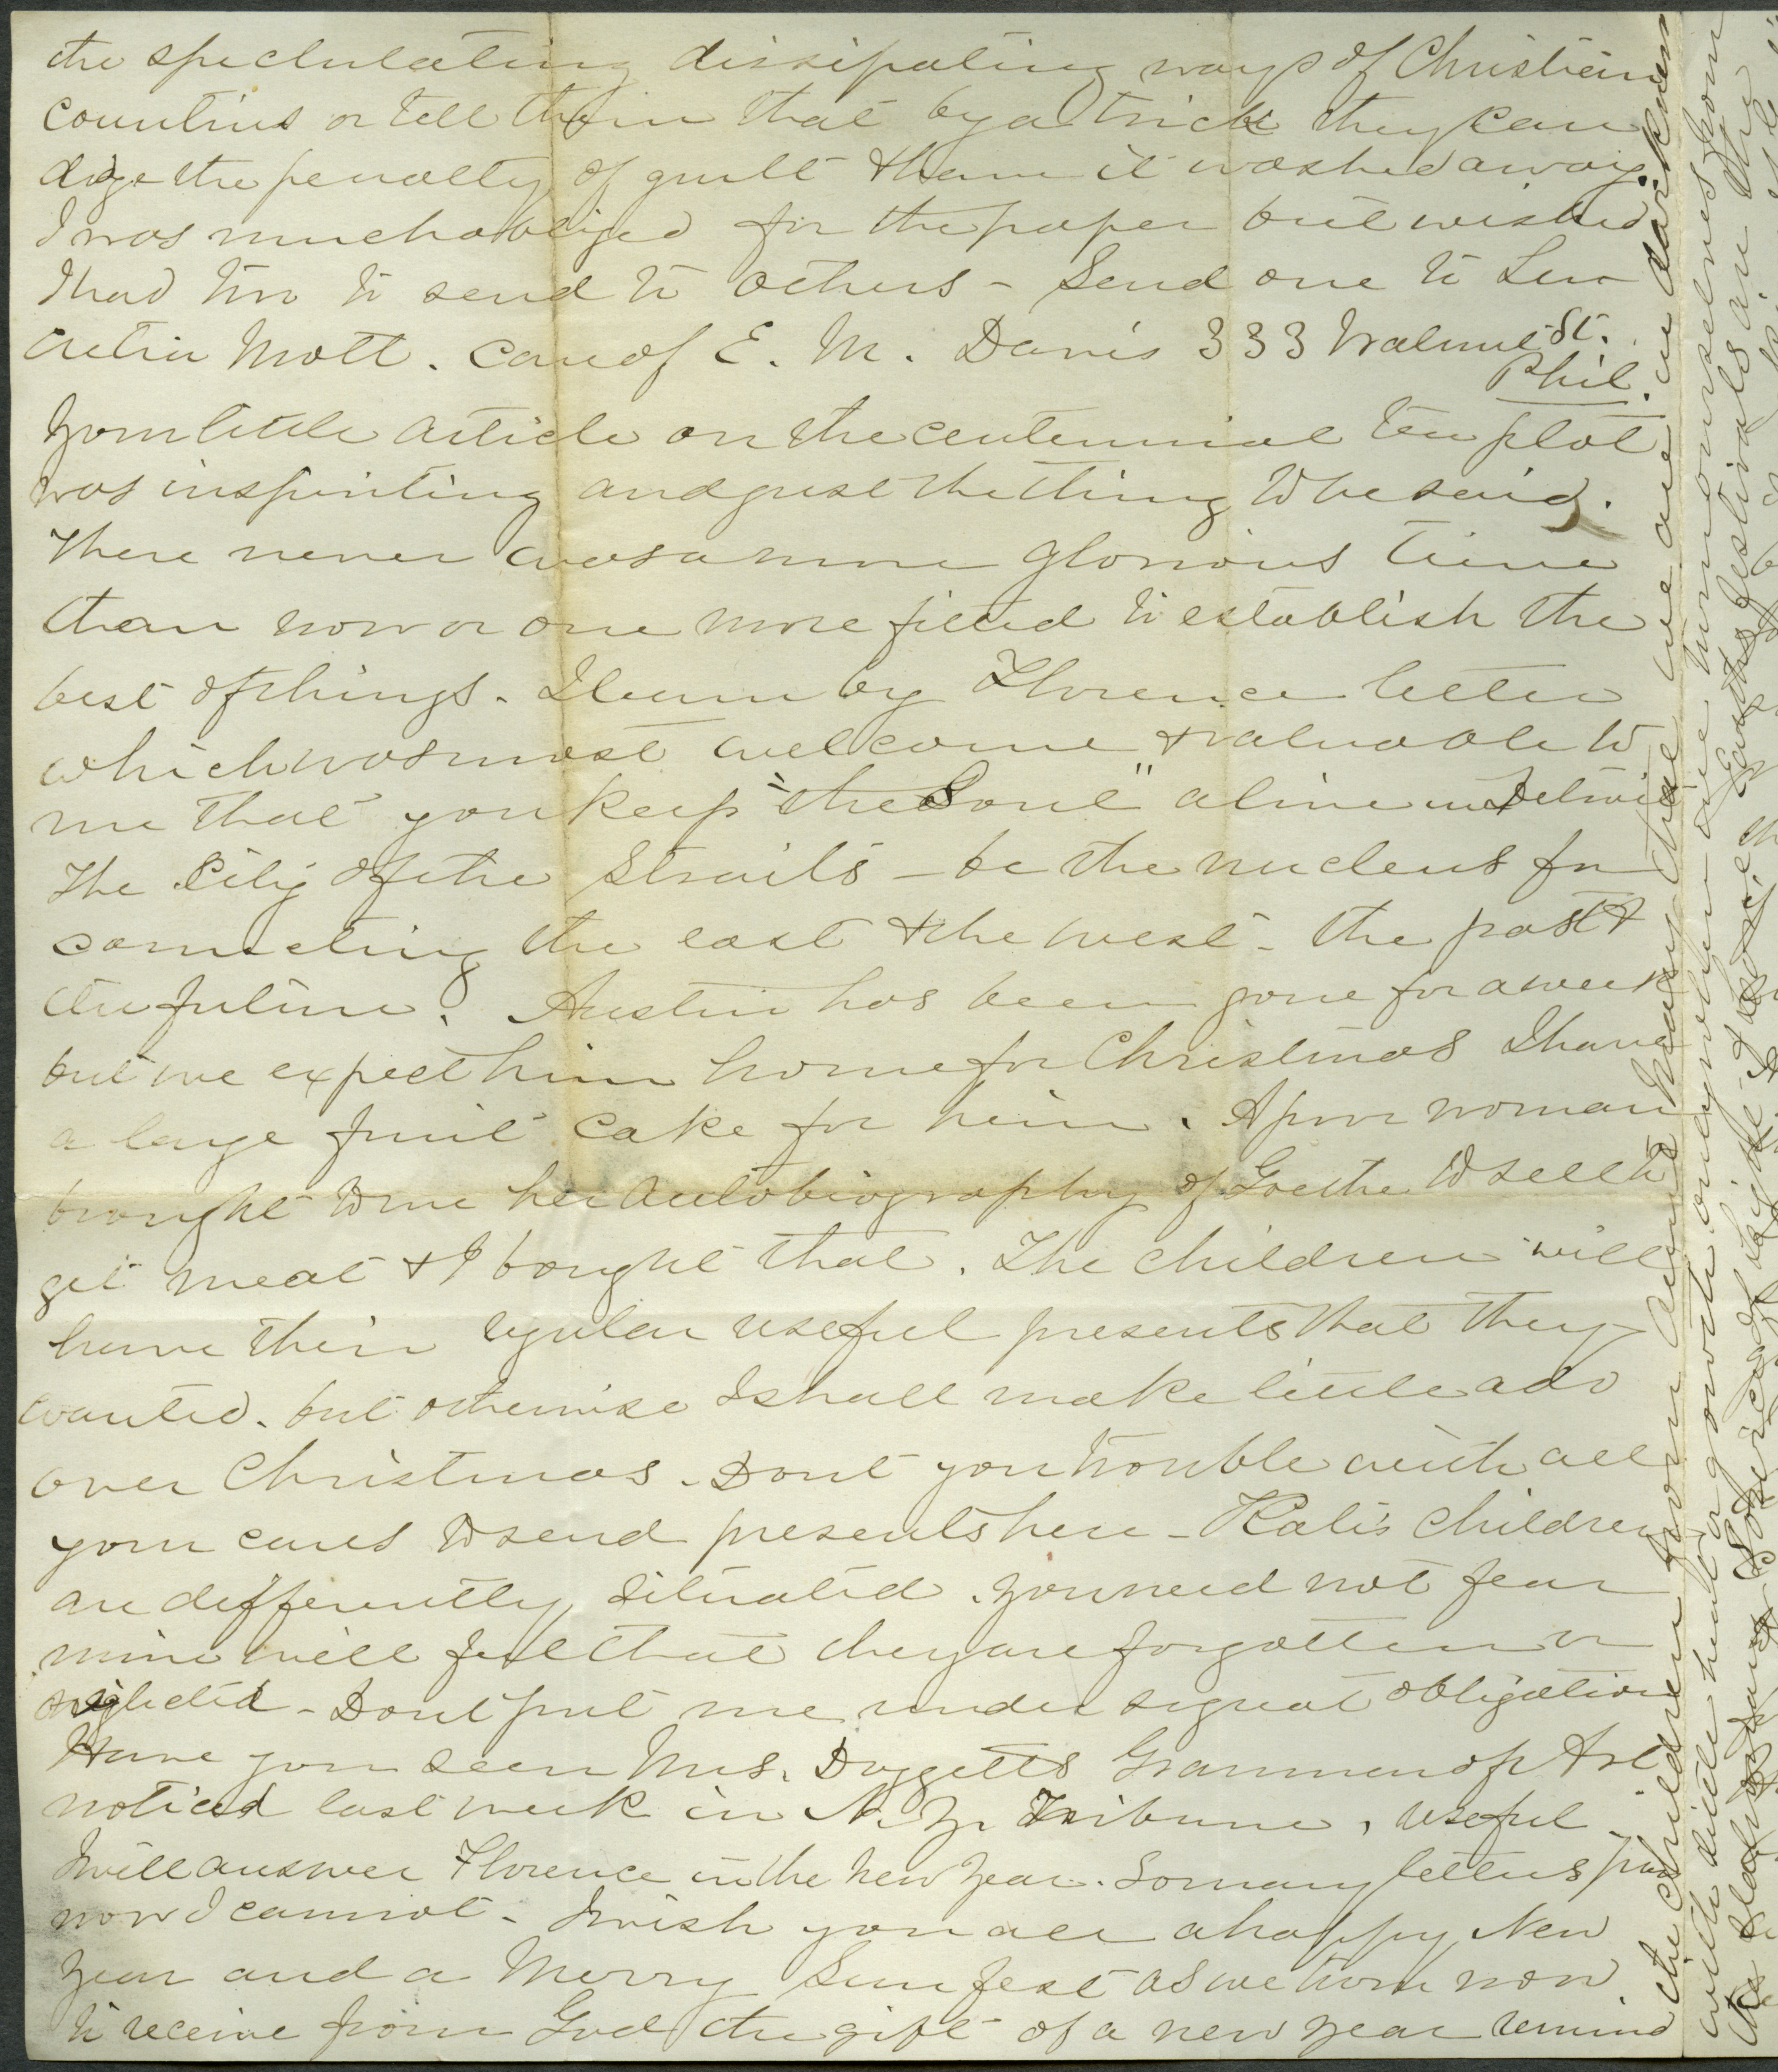 the speculating dissipating ways of Christian
countries or tell them that by a trick they can
dodge the penalty of guilt & have it washed away.
I was much obliged for the paper but wished
I had two to send to others - Send one to Lu-
cretia Mott. care of E. M. Davis 333 Walnut St.
Phil.
Your little article on the centennial tea plot
was inspiriting and just the thing to be said.
There never was a more glorious time
than now or one more fitted to establish the
best of things. I learn by Florence letter
which was most welcome & valuable to
me that you keep "the Soul" alive in Detroit
The City of the Straits - be the nucleus for
connecting the east & the west - the past &
the future. Austin has been gone for a week
but we expect him home for Christmas I have
a large fruit cake for him. A poor woman
brought to me her Autobiography of Goethe to sell to
get meat & I bought that. The children will
have their regular useful presents that they
wanted. but otherwise I shall make little ado
over Christmas. Dont you trouble with all
your cares to send presents here - Kate's children
are differently situated. you need not fear
mine will feel that they are forgotten or
neglected - Dont put me under so great obligation
Have you seen Mrs. Doggetts Grammar of Art
noticed last week in N. Y. Tribune, useful -
I will answer Florence in the New Year. So many letters
now I cannot - I wish you all a happy New
Year and a Merry Sun fest as we turn now
to receive from God the gift of a new year remind
the children from Aunt that we are in darkness
with little heat or growth only when we turn ourselves from